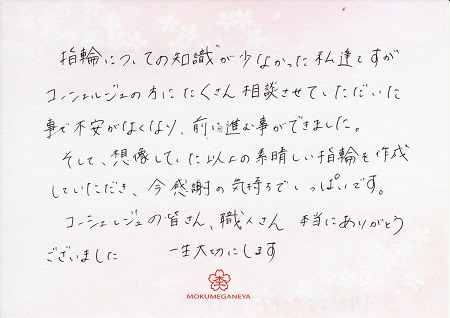 指輪についての知識が少なかった私達ですが
コンシェルジュの方にたくさん相談させていただいた
事で不安がなくなり、前に進む事ができました。
そして、想像していた以上の素晴しい指輪を作成
していただき、今感謝の気持ちでいっぱいです。
コンシェルジュの皆さん、職人さん 本当にありがとう
ございました 一生大切にします
MOKUMEGANEYA